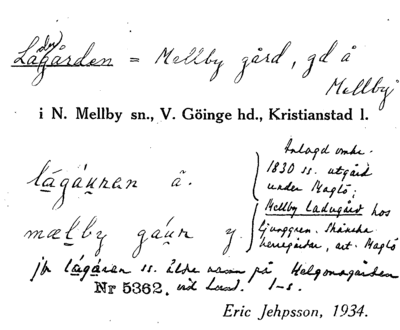 Ladugården = Mellby gård, gd å
Mellby
i N. Mellby sn., V. Göinge hd., Kristianstad l.
Anlagd omkr.
1830 ss. utgård
under Maglö;
lágáu̯ran å.
Mellby Ladugård hos
Ljunggren. Skånska
herregårdar, art. Maglö
mælby gáu̯r y.
jfr lágáran ss. äldre namn på Helgonagården
Nr 5362. vid Lund. 1-s.
Eric Jehpsson, 1934.